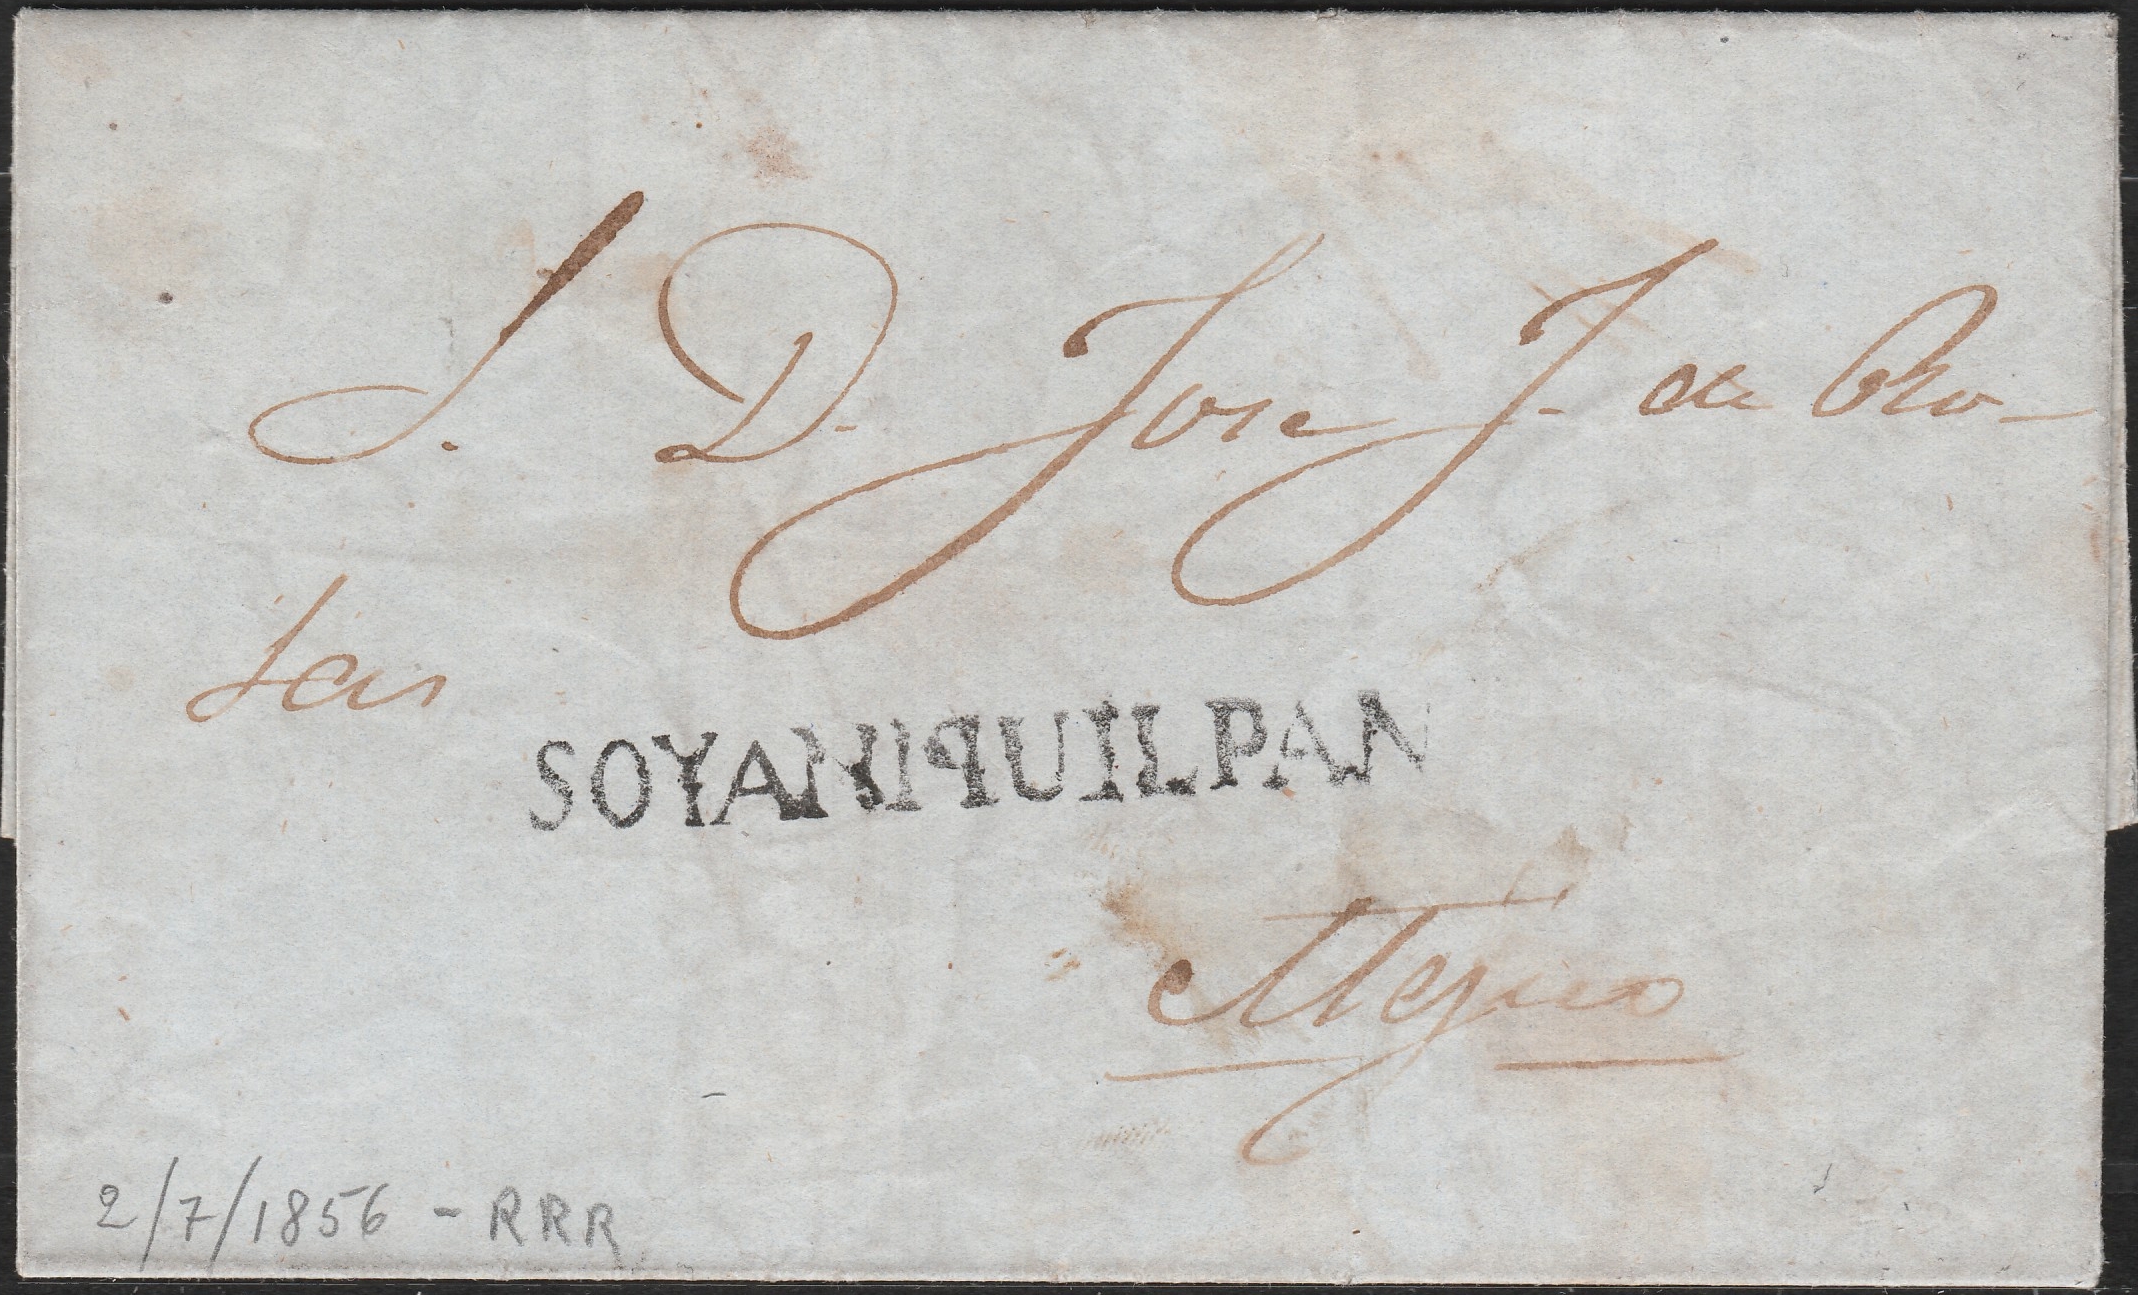 S. D. Jose J. de Ro-
sas
SOYANIQUILPAN
Mejico
2/7/1856 - RRR